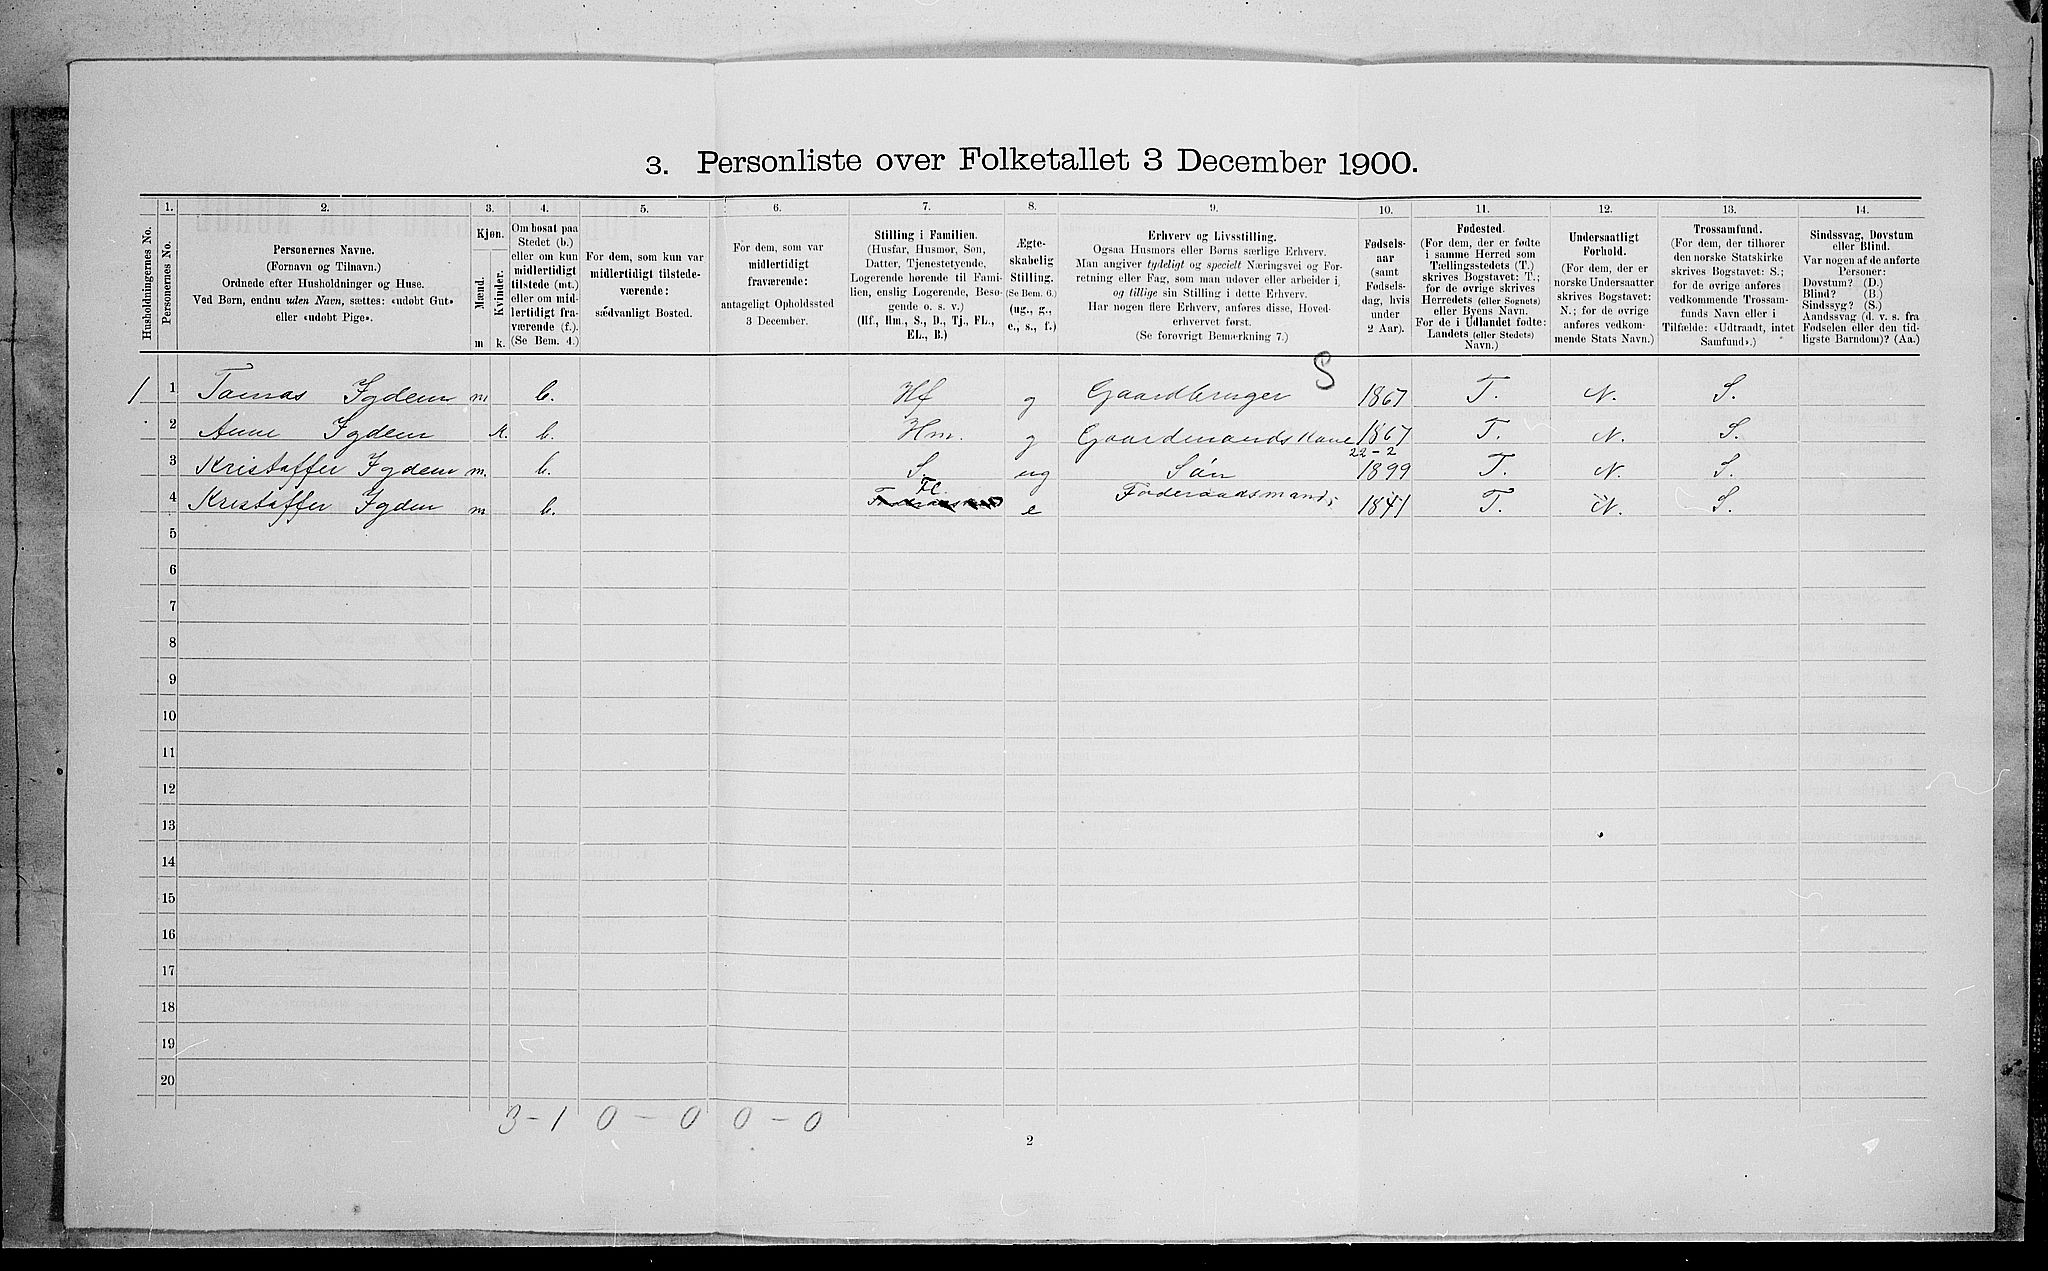 3. Personliste over Folketallet 3 December 1900.
Husholdningernes No.
1.
Personernes No.
2.
Personernes Navne.
(Fornavn og Tilnavn.)
Ordnede efter Husholdninger og Huse.
Ved Børn, endnu uden Navn, sættes: «udøbt Gut»
eller «udøbt Pige».
3.
Kjøn.
Mænd.
Kvinder.
m
k.
4.
Om bosat paa
Stedet (b.)
eller om kun
midlertidigt
tilstede (mt.)
eller om mid-
lertidigt fra-
værende (f.).
(Se Bem. 4.)
5.
For dem, som kun var
midlertidigt tilstede-
værende:
sædvanligt Bosted.
6.
For dem, som var
midlertidigt
fraværende:
antageligt Opholdssted
3 December.
7.
Stilling i Familien.
(Husfar, Husmor, Søn,
Datter, Tjenestetyende,
Logerende hørende til Fami-
lien, enslig Logerende, Besø-
gende o. s. v.)
(Hf., Hm., S., D., Tj., FL.,
EL., B.)
8.
Ægte-
skabelig
Stilling.
(Se Bem. 6.)
(ug., g.,
e., s., f.)
9.
Erhverv og Livsstilling.
Ogsaa Husmors eller Børns særlige Erhverv.
Man angiver tydeligt og specielt Næringsvei og For-
retning eller Fag, som man udøver eller arbeider i,
og tillige sin Stilling i dette Erhverv.
Har nogen flere Erhverv, anføres disse, Hoved-
erhvervet først.
(Se forøvrigt Bemærkning 7.)
10.
Fødsels-
aar
(samt
Fødsels-
dag, hvis
under
2 Aar).
11.
Fødested.
(For dem, der er fødte
i samme Herred som
Tællingsstedets (T.)
skrives Bogstavet: T.;
for de øvrige skrives
Herredets (eller Sognets)
eller Byens Navn.
For de i Udlandet fødte:
Landets (eller Stedets)
Navn.)
12.
Undersaatligt
Forhold.
(For dem, der er
norske Undersaatter
skrives Bogstavet:
N.; for de øvrige
anføres vedkom-
mende Stats Navn.)
13.
Trossamfund.
(For dem, der tilhører
den norske Statskirke
skrives Bogstavet: S.;
for de øvrige anføres
vedkommende Trossam-
funds Navn eller i
Tilfælde: «Udtraadt, intet
Samfund».)
14.
Sindssvag, Døvstum
eller Blind.
Var nogen af de anførte
Personer:
Døvstum? (D.)
Blind? (B.)
Sindssyg? (S.)
Aandssvag (d. v. s. fra
Fødselen eller den tid-
ligste Barndom)? (Aa.)
S
1 1 Tomas Igdem m. b. Hf g Gaardbruger 1867 T. N. S.
2 Anne Igdem k. b. Hm. g Gaardmands Kone 1867 T. N. S.
22-2
3 Kristoffer Igdem m. b. S. ug Søn 1899 T. N. S.
4 Kristoffer Igdem m b. FL. e Føderaadsmand 1841 T. N. S.
5
6
7
8
9
10
11
12
13
14
15
16
17
18
19
20
3 - 1 0 - 0 0 - 0
2